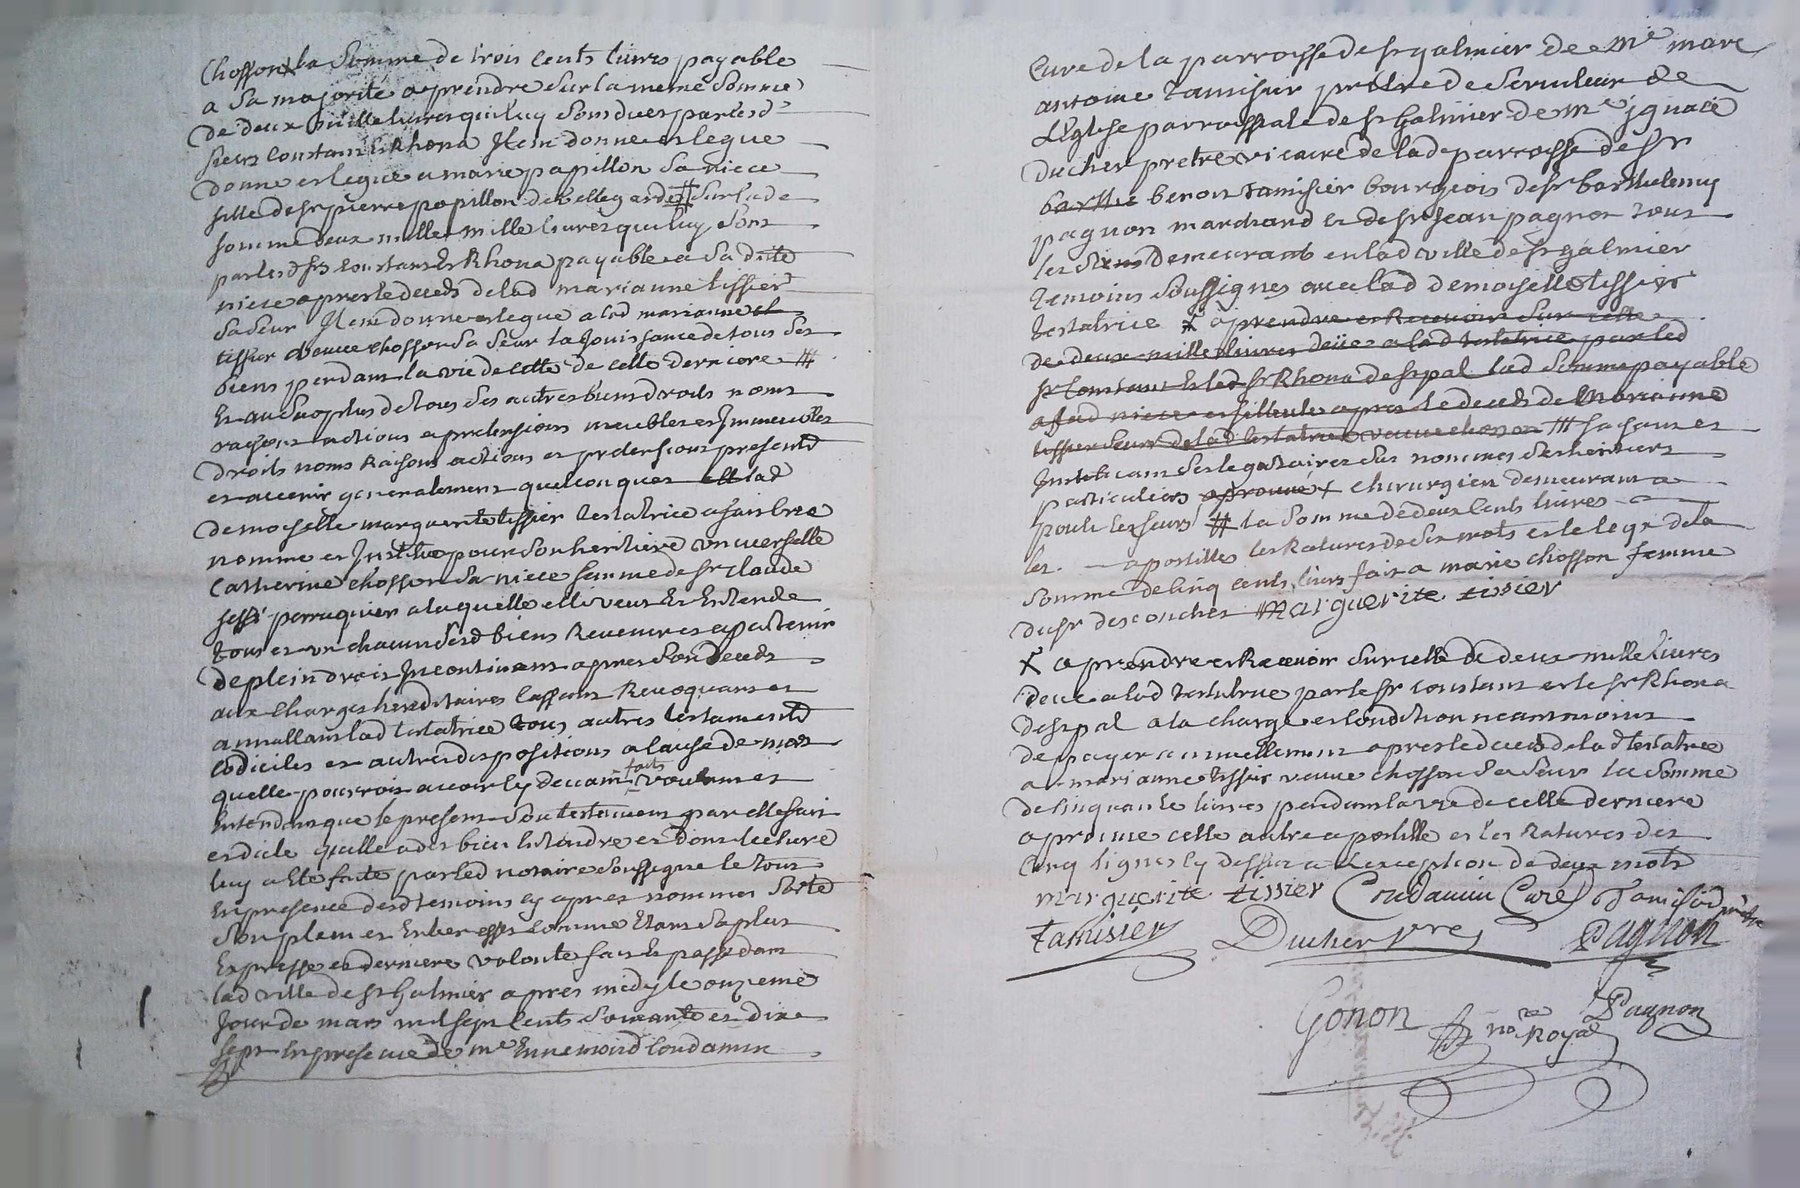 Chosson la Somme de trois cents livres payable
a Sa majorité a prendre Sur la meme Somme
de deux mille livres qui luy Sont dues par lesd
sieurs Constant et Rhona Item donne et legue
donne et legue a marie papillon Sa niece
fille de sr pierre papillon de bellegarde # Sur lade
somme deux mille mille livres qui luy Sont
par lesd srs Constant et Rhona payable a Sa dite
niece apres le deceds de lad marianne tissier
Sa Seur Item donne et legue a lad marianne
tissier veuve chosson Sa Seur la Jouissance de tous Ses
biens pendant la vie de cette de celle derniere #
Et au Surplus de tous Ses autres biens droits noms
raisons actions et pretensions meubles et Immeubles
droits noms Raisons actions et pretensions presents
et avenir generalement quelconques lad
demoiselle marguerite tissier testatrice a fait cree
nomme et Institue pour Son heritiere universelle
Catherine chosson Sa niece femme de sr Claude
perruquier a laquelle elle veut et Entende
tous et un chacun Sesd biens Revenir et apartenir
de plein droit Incontinent apres Son deceds
aux charges hereditaires Cassant Revoquant et
annullant lad testatrice tous autres testaments
codiciles et autres dispositions a cause de mort
quelle pourroit avoir cy devant faits voulant et
Entendant que le present Son testament par elle fait
et dicté quelle a des bien Entendre et dont lecture
luy a ete faite par led notaire Soussigne le tout
En presence desd temoins cy apres nommés Sorte
Son plein et Entier effet comme Etant Sa plus
Expresse et derniere volonte fait et passé dans
lad ville de st Galmier apres midy le onzieme
Jour de mars mil Sept cents Soixante et dix
Sept En presence de me Ennemond Condamin
Cure de la parroisse de st galmier de me marc
antoine tamisier pretre de Serviteur de
L'Eglise parroissiale de st Galmier de me ignace
ducher pretre vicaire de lade parroisse de sr
barthe benoit tamisier bourgeois de sr barthelemy
pagnon marchand et de sr Jean pagnon tous
les Siens demeurant en lad ville de st galmier
temoins Soussignes avec lad demoiselle tissier
testatrice X a prendre et Recevoir Sur celle
de deux mille livres deües a lad testatrice par led
sr Constant et led sr Rhona de st pal lad Somme payable
a sad niece et filleule apres le deceds de Marianne
tissier Seur de lad testatrice veuve chosson # faisant et
Instituant Ses legataires Sus nommes Ses heritiers
particuliers aprouvé X chirurgien demeurant a
# la Somme de deux cents livres
les. — apostilles les Ratures de Six mots et le legs de la
Somme de Cinq cents livres fait a marie chosson femme
du sr descouches marguerite tissier
X a prendre et Recevoir Sur celle de deux mille livres
deue a lad testatrice par le sr Constant et le sr Rhona
de st pal a la charge et Condition neanmoins
de payer annuellement apres le deceds de lad testatrice
a marianne tissier veuve chosson Sa Seur la Somme
de Cinquante livres pendant la vie de celle derniere
aprouve cette autre apostille et les Ratures des
Cinq lignes cy dessus a l'exception de deux mots
marguerite tissier Condamin Curé Tamisier prêtre
tamisier Ducher pre Pagnon
Gonon nore Royal Pagnon